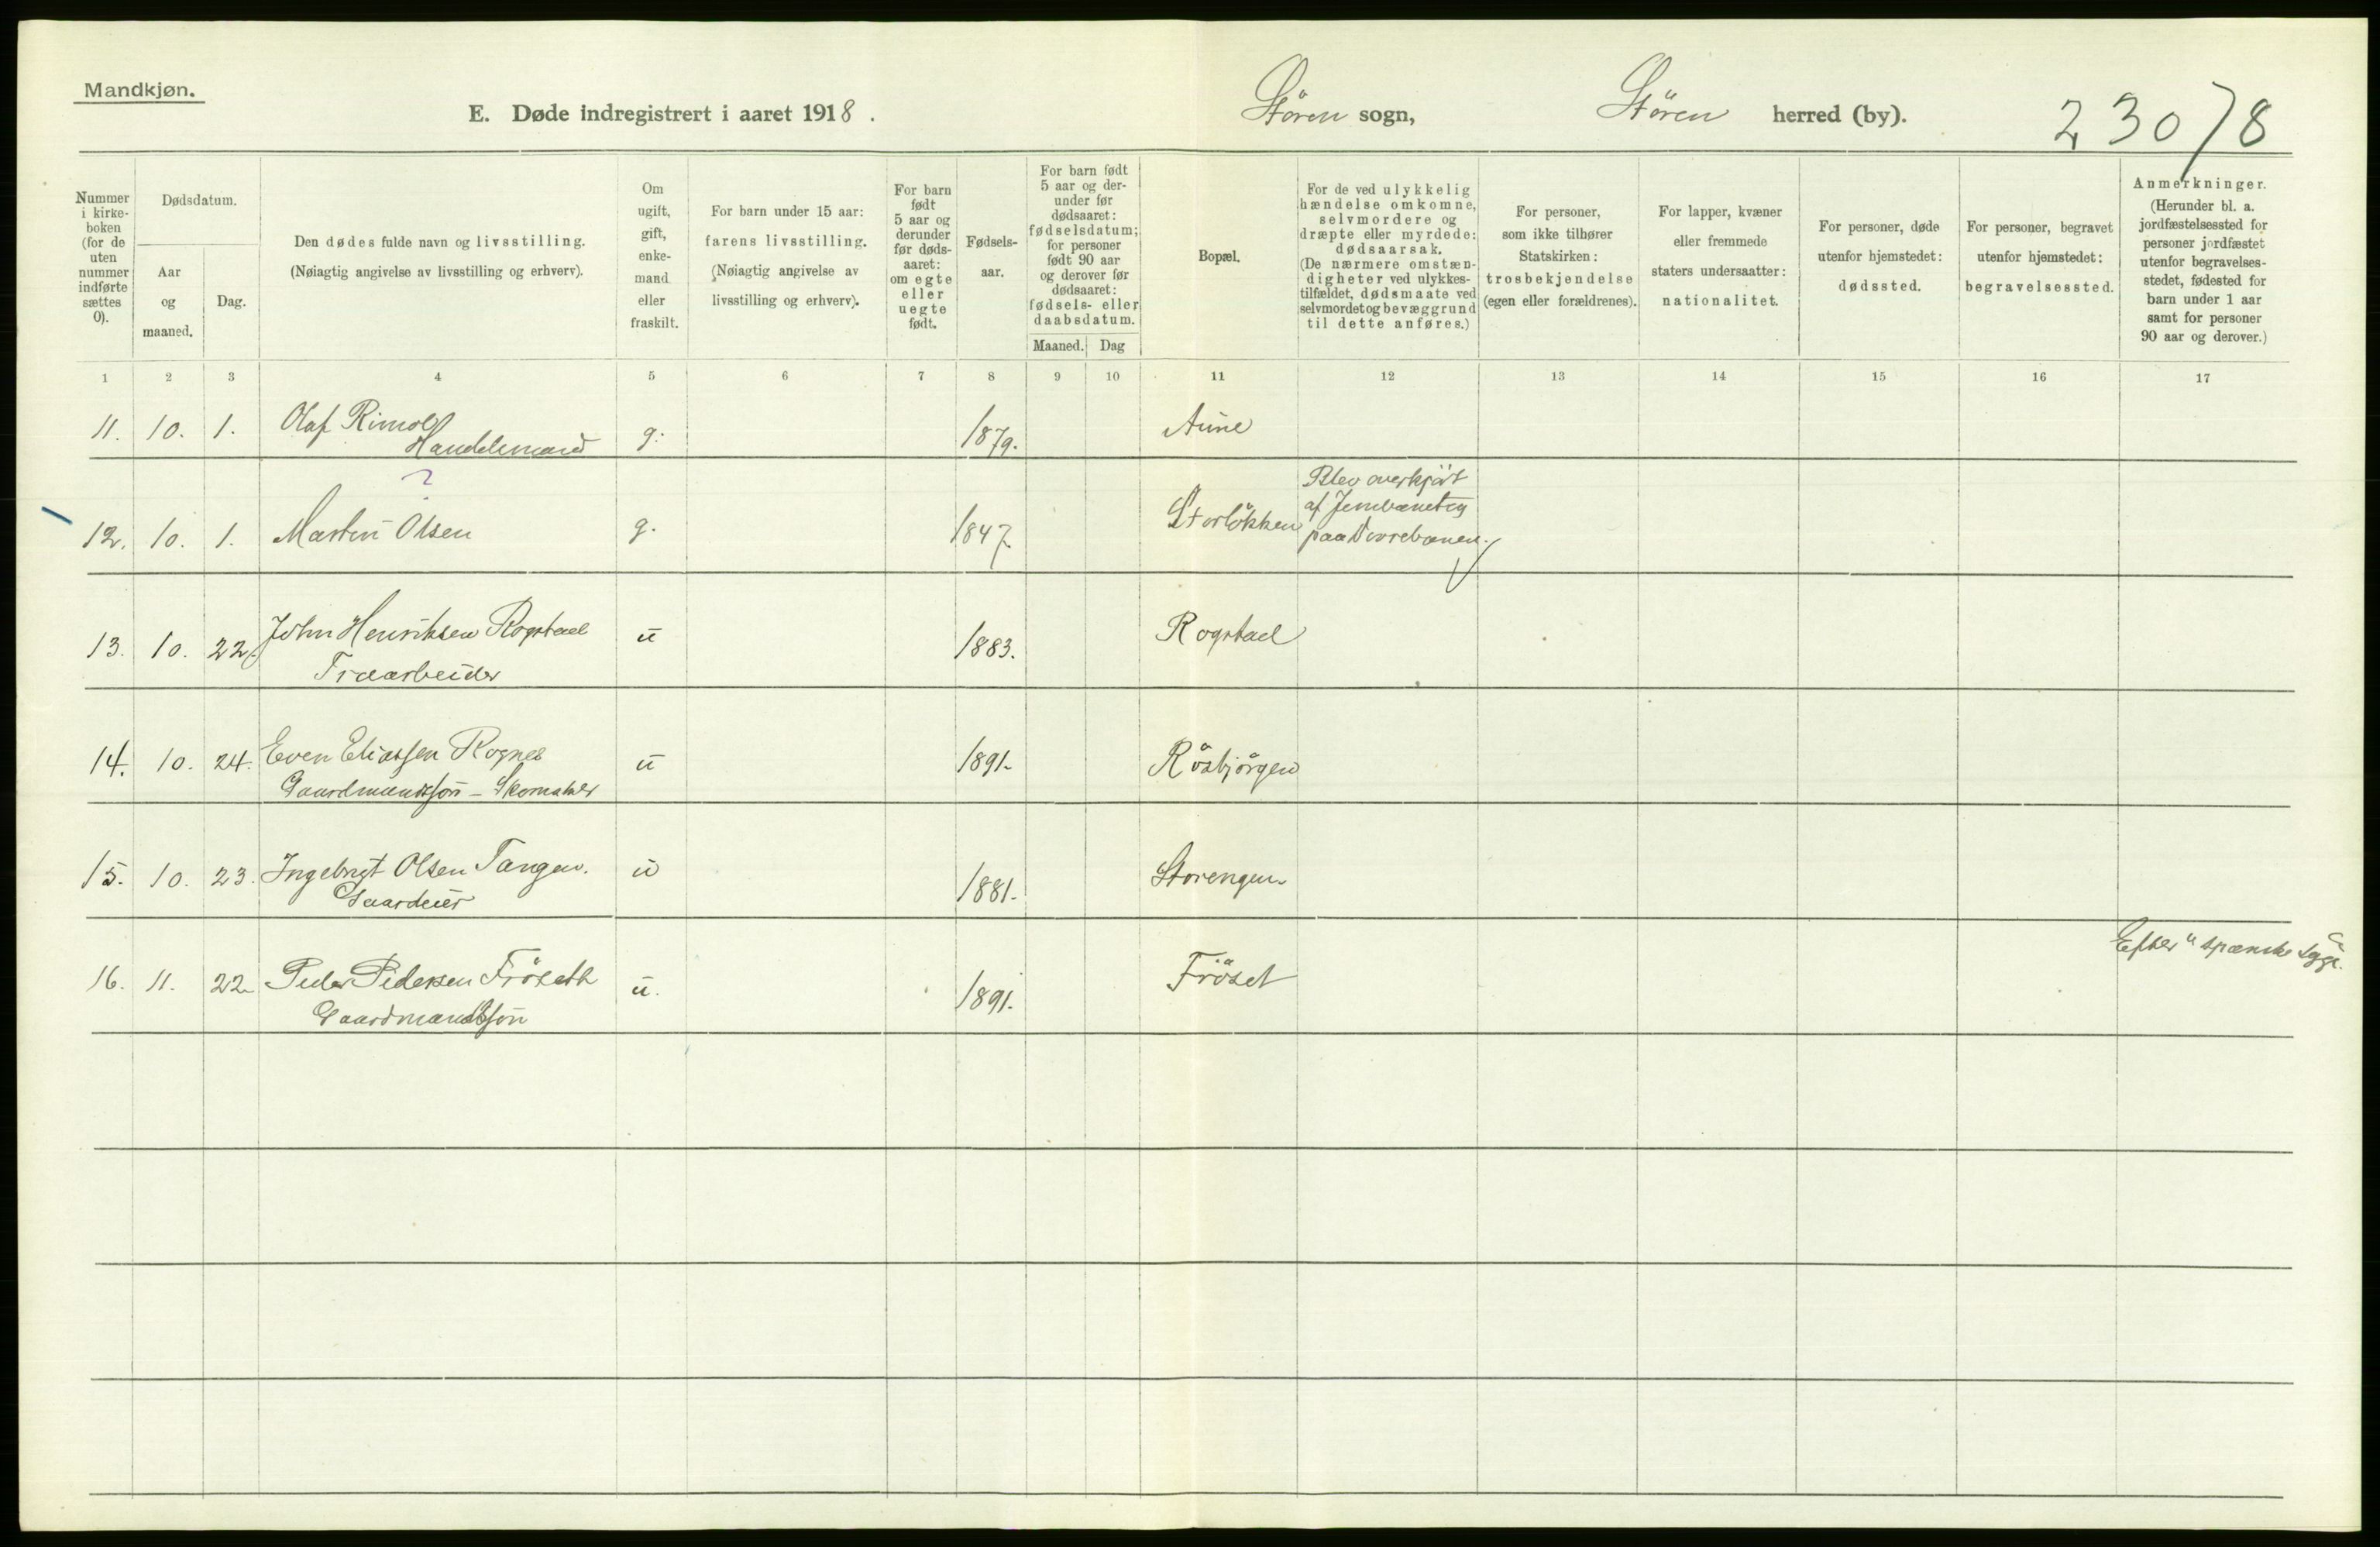 Mandkjøn.
E. Døde indregistrert i aaret 1918.
Stören sogn,
Stören herred (by).
230/8
Nummer i kirkeboken (for de uten nummer indførte sættes 0).
Dødsdatum.
Aar og maaned.
Dag.
Den dødes fulde navn og livsstilling.
(Nøiagtig angivelse av livsstilling og erhverv).
Om ugift, gift, enkemand eller fraskilt.
For barn under 15 aar: farens livsstilling.
(Nøiagtig angivelse av livsstilling og erhverv).
For barn født 5 aar og derunder før dødsaaret: om egte eller uegte født.
Fødselsaar.
For barn født 5 aar og derunder før dødsaaret: fødselsdatum; for personer født 90 aar og derover før dødsaaret: fødsels- eller daabsdatum.
Maaned. Dag
Bopæl.
For de ved ulykkelig hændelse omkomne, selvmordere og dræpte eller myrdede: dødsaarsak.
(De nærmere omstændigheter ved ulykkestilfældet, dødsmaate ved selvmordet og bevæggrund til dette anføres.)
For personer, som ikke tilhører Statskirken: trosbekjendelse (egen eller forældrenes).
For lapper, kvæner eller fremmede staters undersaatter: nationalitet.
For personer, døde utenfor hjemstedet: dødssted.
For personer, begravet utenfor hjemstedet: begravelsessted.
Anmerkninger.
(Herunder bl. a. jordfæstelsessted for personer jordfæstet utenfor begravelsesstedet, fødested for barn under 1 aar samt for personer 90 aar og derover.)
1 2 3 4 5 6 7 8 9 10 11 12 13 14 15 16 17
11. 10. 1. Olaf Rimol g. 1879. Aune
Handelsmand
?
12. 10. 1. Martin Olsen g. 1847 Storløkken
Blev overkjört
af Jernbanetog
paa Dovrebanen.
13. 10. 22. John Henriksen Rogstad u 1883. Rogstad
Træarbeider
14. 10. 24. Even Eliassen Rognes u 1891. Rösbjörgen
Gaardmandssön - Skomaker
15. 10. 23. Ingebrigt Olsen Tangen. u 1881. Storengen.
Gaardeier
16. 11. 22 Peder Pedersen Fröseth u. 1891. Fröset
Gaardmandssön
Efter "spanske syge.